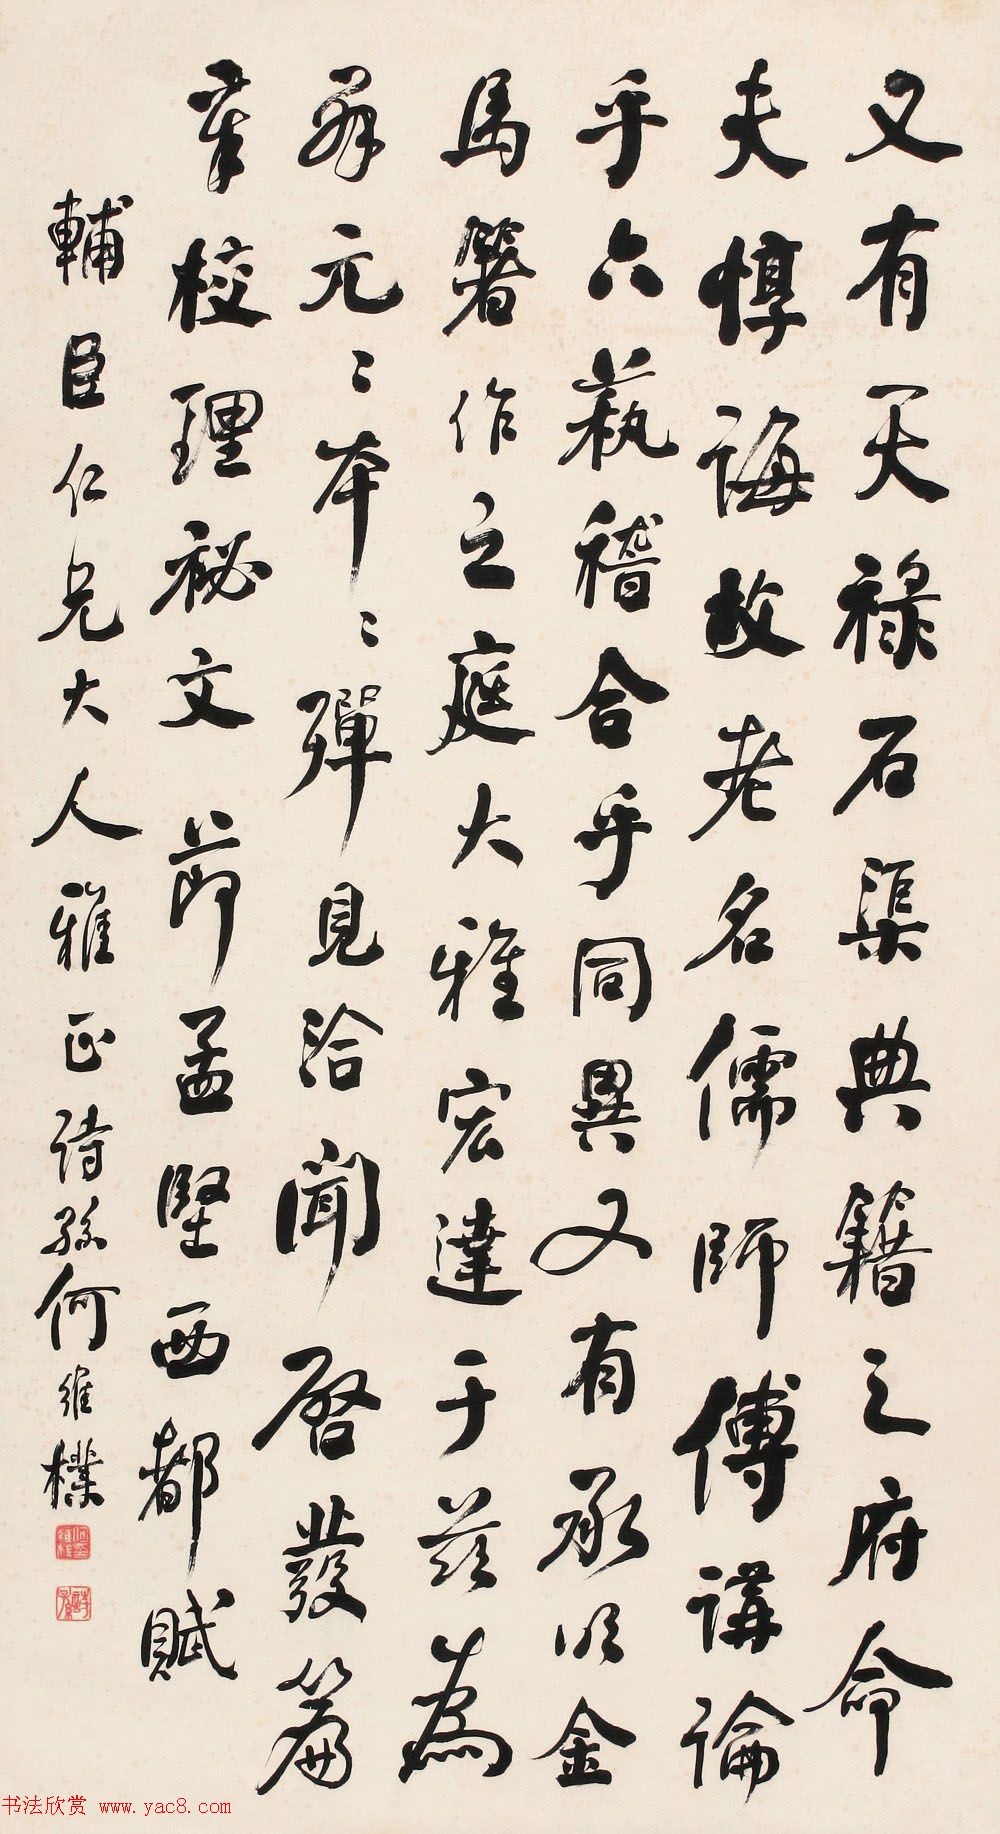 又有天祿石渠典籍之府命
夫惇誨故老名儒師傅講論
乎六蓺稽合乎同異又有承明金
馬箸作之庭大雅宏達于茲為
羣元〻本〻殫見洽聞啓發篇
章校理祕文節孟堅西都賦
輔臣仁兄大人雅正詩孫何維樸
书法欣赏 www.yac8.com